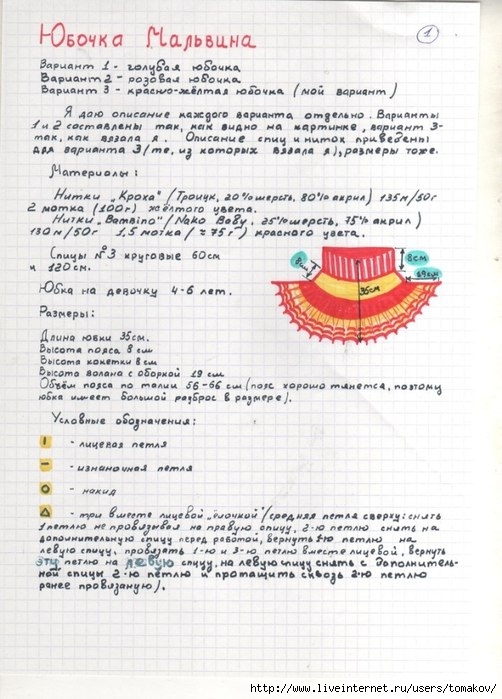 1
Юбочка Мальвина
Вариант 1 - голубая юбочка
Вариант 2 - розовая юбочка
Вариант 3 - красно-жёлтая юбочка (мой вариант)
Я даю описание каждого варианта отдельно. Варианты
1 и 2 составлены так, как видно на картинке, вариант 3-
так, как вязала я. Описание спиц и ниток приведены
для варианта 3/те, из которых вязала я), размеры тоже.
Материалы:
Нитки „Кроха" (Троицк, 20% шерсть, 80% акрил) 135м/50г
2 мотка (100г) жёлтого цвета.
Нитки „Bambino" (Nako Baby, 25% шерсть, 75% акрил)
130м/50г 1,5 мотка (≈75г) красного цвета.
Спицы №3 круговые 60см
и 120см.
8см
8см
35см
19см
Юбка на девочку 4-6 лет.
Размеры:
Длина юбки 35см.
Высота пояса 8см
Высота кокетки 8см
Высота волана с оборкой 19 см
Объём пояса по талии 56-66 см (пояс хорошо тянется, поэтому
юбка имеет большой разброс в размере).
Условные обозначения:
- лицевая петля
- изнаночная петля
- накид
- три вместе лицевой „ёлочкой"/средняя петля сверху: снять
1 петлю не провязывая на правую спицу, 2-ю петлю снять на
дополнительную спицу перед работой, вернуть 1-ю петлю на
левую спицу, провязать 1-ю и 3-ю петлю вместе лицевой, вернуть
эту петлю на левую спицу, на левую спицу снять с дополнитель-
ной спицы 2-ю петлю и протащить сквозь 2-ю петлю
ранее провязаную).
http://www.liveinternet.ru/users/tomakov/